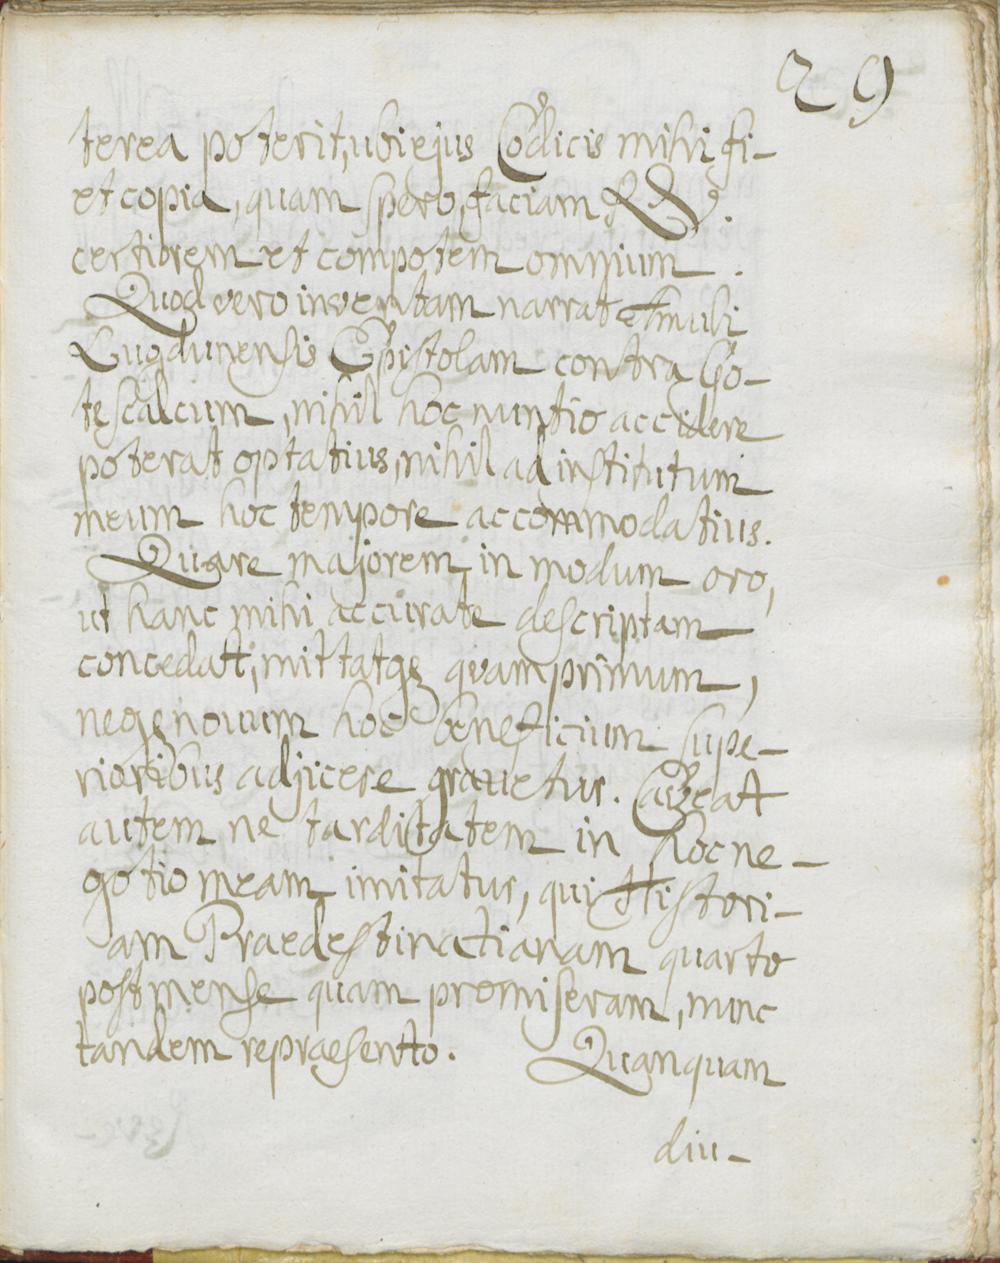 29
terea poterit, ubi ejus Codicis mihi fi-
et copia, quam spero, faciam
certiorem et compotem omnium.
Quod vero inventam narrat Amuli
Lugdunensis Epistolam contra Go-
tescalcum, nihil hoc nuntio accidere
poterat optatius, nihil ad institutum
meum hoc tempore accommodatius.
Quare majorem in modum oro,
ut hanc mihi accurate descriptam
concedat, mittatqe quamprimum,
neqe novum hoc beneficium supe-
rioribus adjicere gravetur. Caveat
autem ne tarditatem in hoc ne-
gotio meam imitatur, qui Histori-
am Praedestinatianam quarto
post mense quam promiseram, nunc
tandem repraesento. Quanquam
diu-